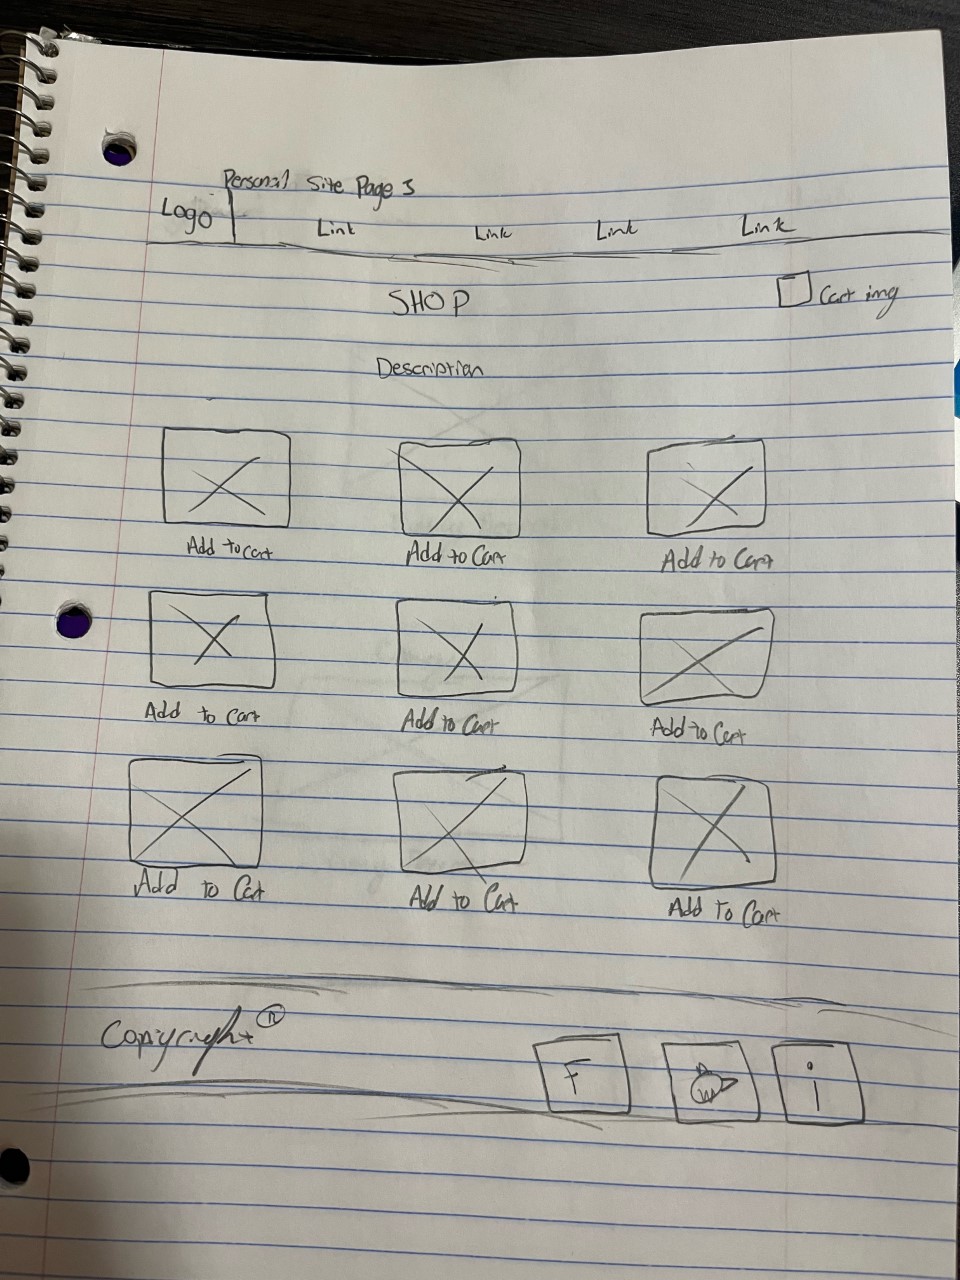 Personal Site Page 3
Logo
Link Link Link Link
SHOP
Cart img
Description
Add to Cart Add to Cart Add to Cart
Add to Cart Add to Cart Add to Cart
Add to Cart Add to Cart Add To Cart
Copiyright ®
F
i